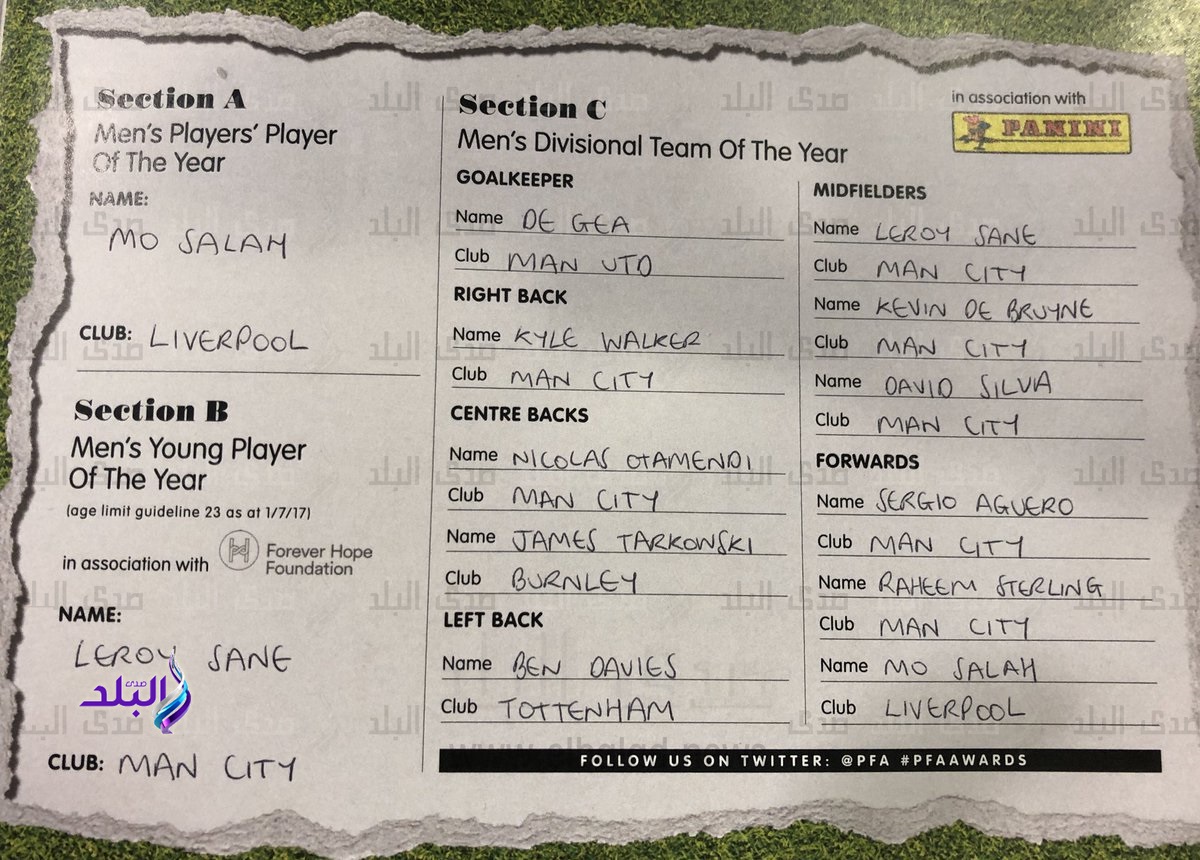 Section A
Men's Players' Player
Of The Year
NAME:
MO SALAH
CLUB: LIVERPOOL
Section B
Men's Young Player
Of The Year
(age limit guideline 23 as at 1/7/17)
in association with Forever Hope
Foundation
NAME:
LEROY SANE
صدى البلد
CLUB: MAN CITY
Section C
Men's Divisional Team Of The Year
in association with
PANINI
GOALKEEPER
Name DE GEA
Club MAN UTD
RIGHT BACK
Name KYLE WALKER
Club MAN CITY
CENTRE BACKS
Name NICOLAS OTAMENDI
Club MAN CITY
Name JAMES TARKOWSKI
Club BURNLEY
LEFT BACK
Name BEN DAVIES
Club TOTTENHAM
MIDFIELDERS
Name LEROY SANE
Club MAN CITY
Name KEVIN DE BRUYNE
Club MAN CITY
Name DAVID SILVA
Club MAN CITY
FORWARDS
Name SERGIO AGUERO
Club MAN CITY
Name RAHEEM STERLING
Club MAN CITY
Name MO SALAH
Club LIVERPOOL
www.elbalad.news
FOLLOW US ON TWITTER: @PFA #PFAAWARDS